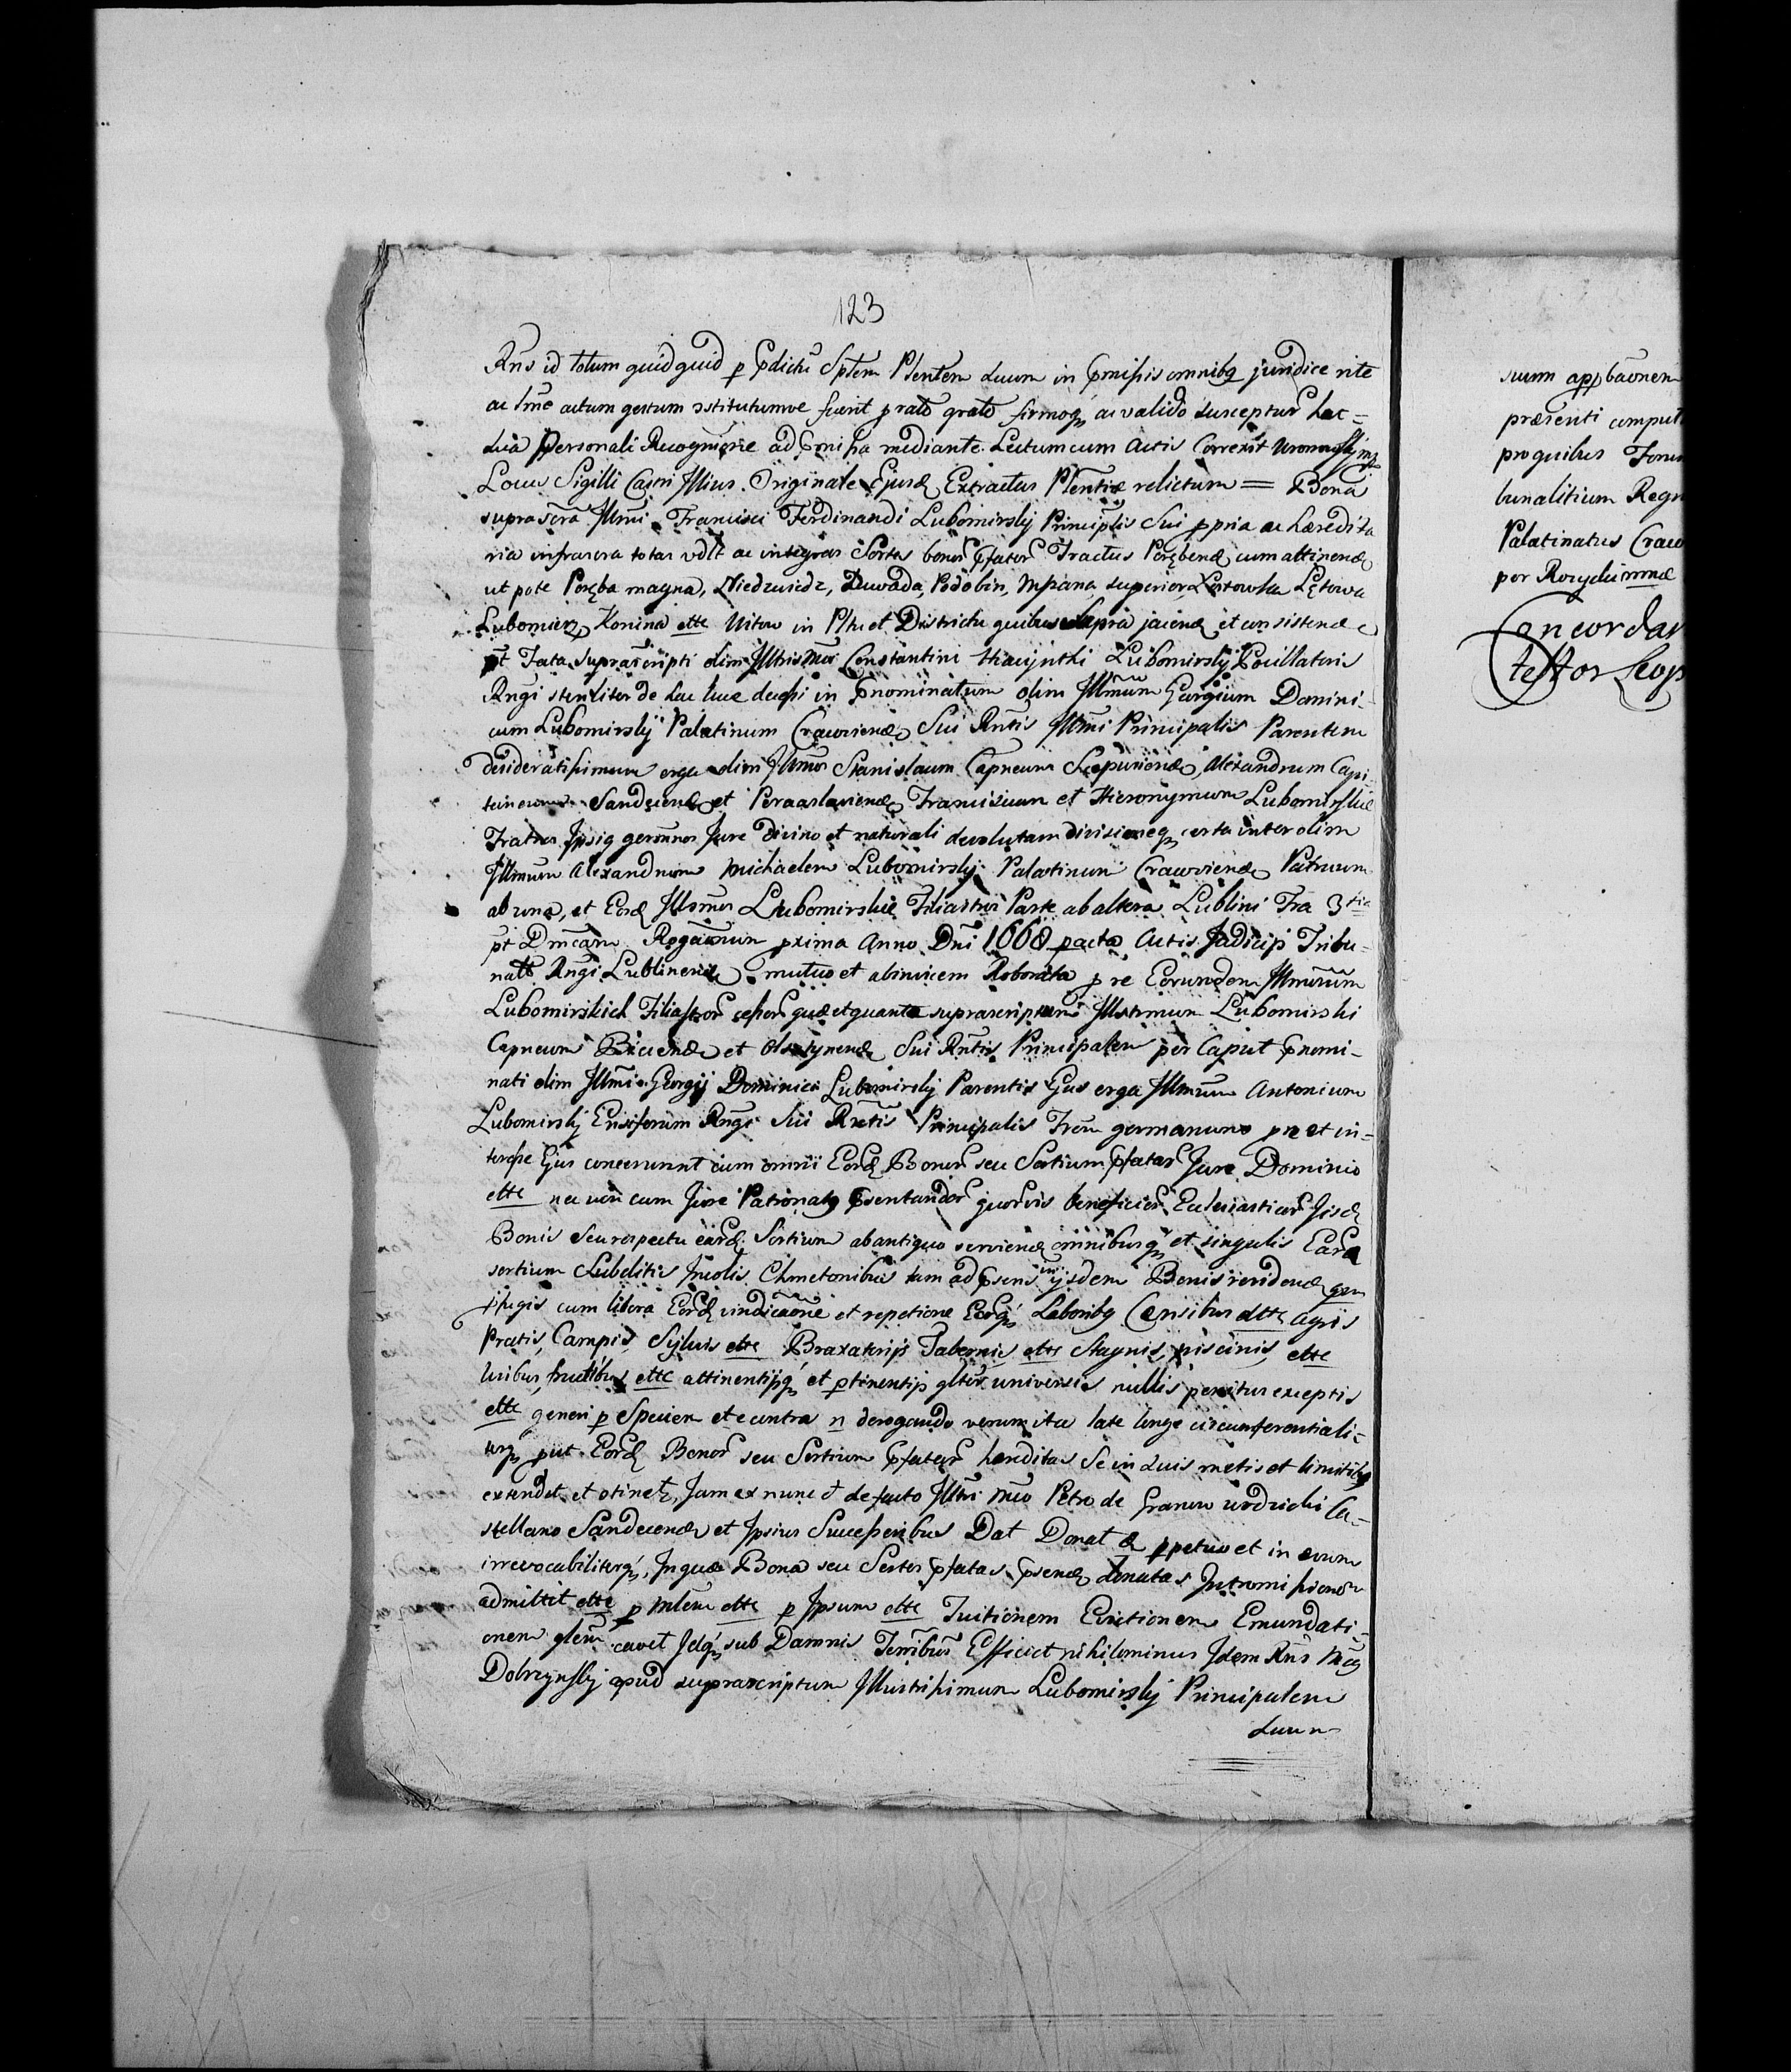 123
Rns id totum quidquid p pdictu Sptem Plentem suum in pmissis omnibq juridice rite
ac lme actum gestum 9stitutumve fuerit prato grato firmoq ac valido suscepturu hac =
sua personali Recognitione ad pmissa mediante. Lectum cum Actis Correxit
Locus Sigilli Castri Illius. Originale Ejusd Extractus Plentiæ relictum = Bona
suprascra Illmi Francisci Ferdinandi Lubomirskij Principlis Sui ppria ac hæredita
ria infrascra totas vdlt ac integras Sortes bonor pfator Tractus Porębens cum attinend
ut pote Poręba magna, Niedzwiedz, Zawada, Podobin, Mszana superior Łętowa
Lubomierz Konina ette Witow in Pltu et Districtu quibus supra jacend et consistend
pt Fata suprascripti olim Illrismi Constantini Hiacynthi Lubomirskij Pocillatoris
Rngi steriliter de hac luce decessi in pnominatum olim Illmum Georgium Domini-
cum Lubomirskij Palatinum Cracoviens Sui Rntis Illmi Principalis Parentem
desideratissimum erga olim Illmos Stanislaum Capneum Scepusiens, Alexandrum Capi-
taneum Sandecens et Peraaslaviens Franciscum et Hieronymum Lubomirskie
Fratres Ipsiq germnos Jure divino et naturali devolutam divisioneq certa inter olim
Illmum Alexandrum Michaelem Lubomirskij Palatinum Cracoviens Patruum
ab una, et Eosd Illsmos Lubomirskie Filiastros Parte ab altera Lublini Fra 3tia
pt Dmcam Rogaonum pxima Anno Dni 1668 pacta Actis Judicij Tribu-
nalt Rngi Lublinens mutuo et abinvicem Roborata p re Eorundem Illmorum
Lubomirskich Filiastror cessor quæ et quanta suprascriptum Illustrmum Lubomirski
Capneum Biecens et Olsztynens Sui Rntis Principalem per Caput pnomi-
nati olim Illmi Georgij Dominici Lubomirskij Parentis Ejus erga Illmum Antonium
Lubomirskij Ensiferum Rngi Sui Rntis Principalis Frem germanum pre et in-
teresse Ejus concernunt cum omni Eord Bonor seu Sortium pfatar Jure Dominio
ette nec non cum Jure Patronatq psentandor quorvis beneficior Ecclesiasticor Iisd
Bonis seu respectu eard Sortium ab antiquo serviend omnibusq et singulis Eard
sortium Subditis Incolis Chmetonibus tam ad psens in ijsdem Bonis residend qm
pfugis cum libera Eord vindicaone et repetione Eorq Laboribq Censibus ette Agris
Pratis, Campis, Sylvis ette Braxatorijs Tabernis ette Stagnis, piscinis, ette
Usibus, fructibus ette attinentijsq et ptinentijs gltr universis nullis penitus exceptis
ette generi p Speciem et e contra n derogando verum ita late longe circumferentiali-
terq put Eord Bonor seu Sortium pfatar hæreditas Se in suis metis et limitibq
extendit et 9tinet, Jam ex nunc et de facto Illtri Mco Petro de Granow Wodzicki Ca-
stellano Sandecens et Ipsius Successoribus Dat Donat & ppetuo et in ævum
irrevocabiliterq. In quæ Bona seu Sortes pfatas psend donatas Intromissionem
admittit ette p Mlem ette p Ipsum ette Tuitionem Evictionem Emundati-
onem glem cavet Idq sub Damnis Terribus Efficiet nihilominus Idem Rns Mcq
Dobrzynskij apud suprascriptum Illustrissimum Lubomirskij Principalem
suum
suum appbaonem
præsenti comput
pro quibus Forum
bunalitium Regn
Palatinatus Craco
per Rozyckimme
Concordat
testor